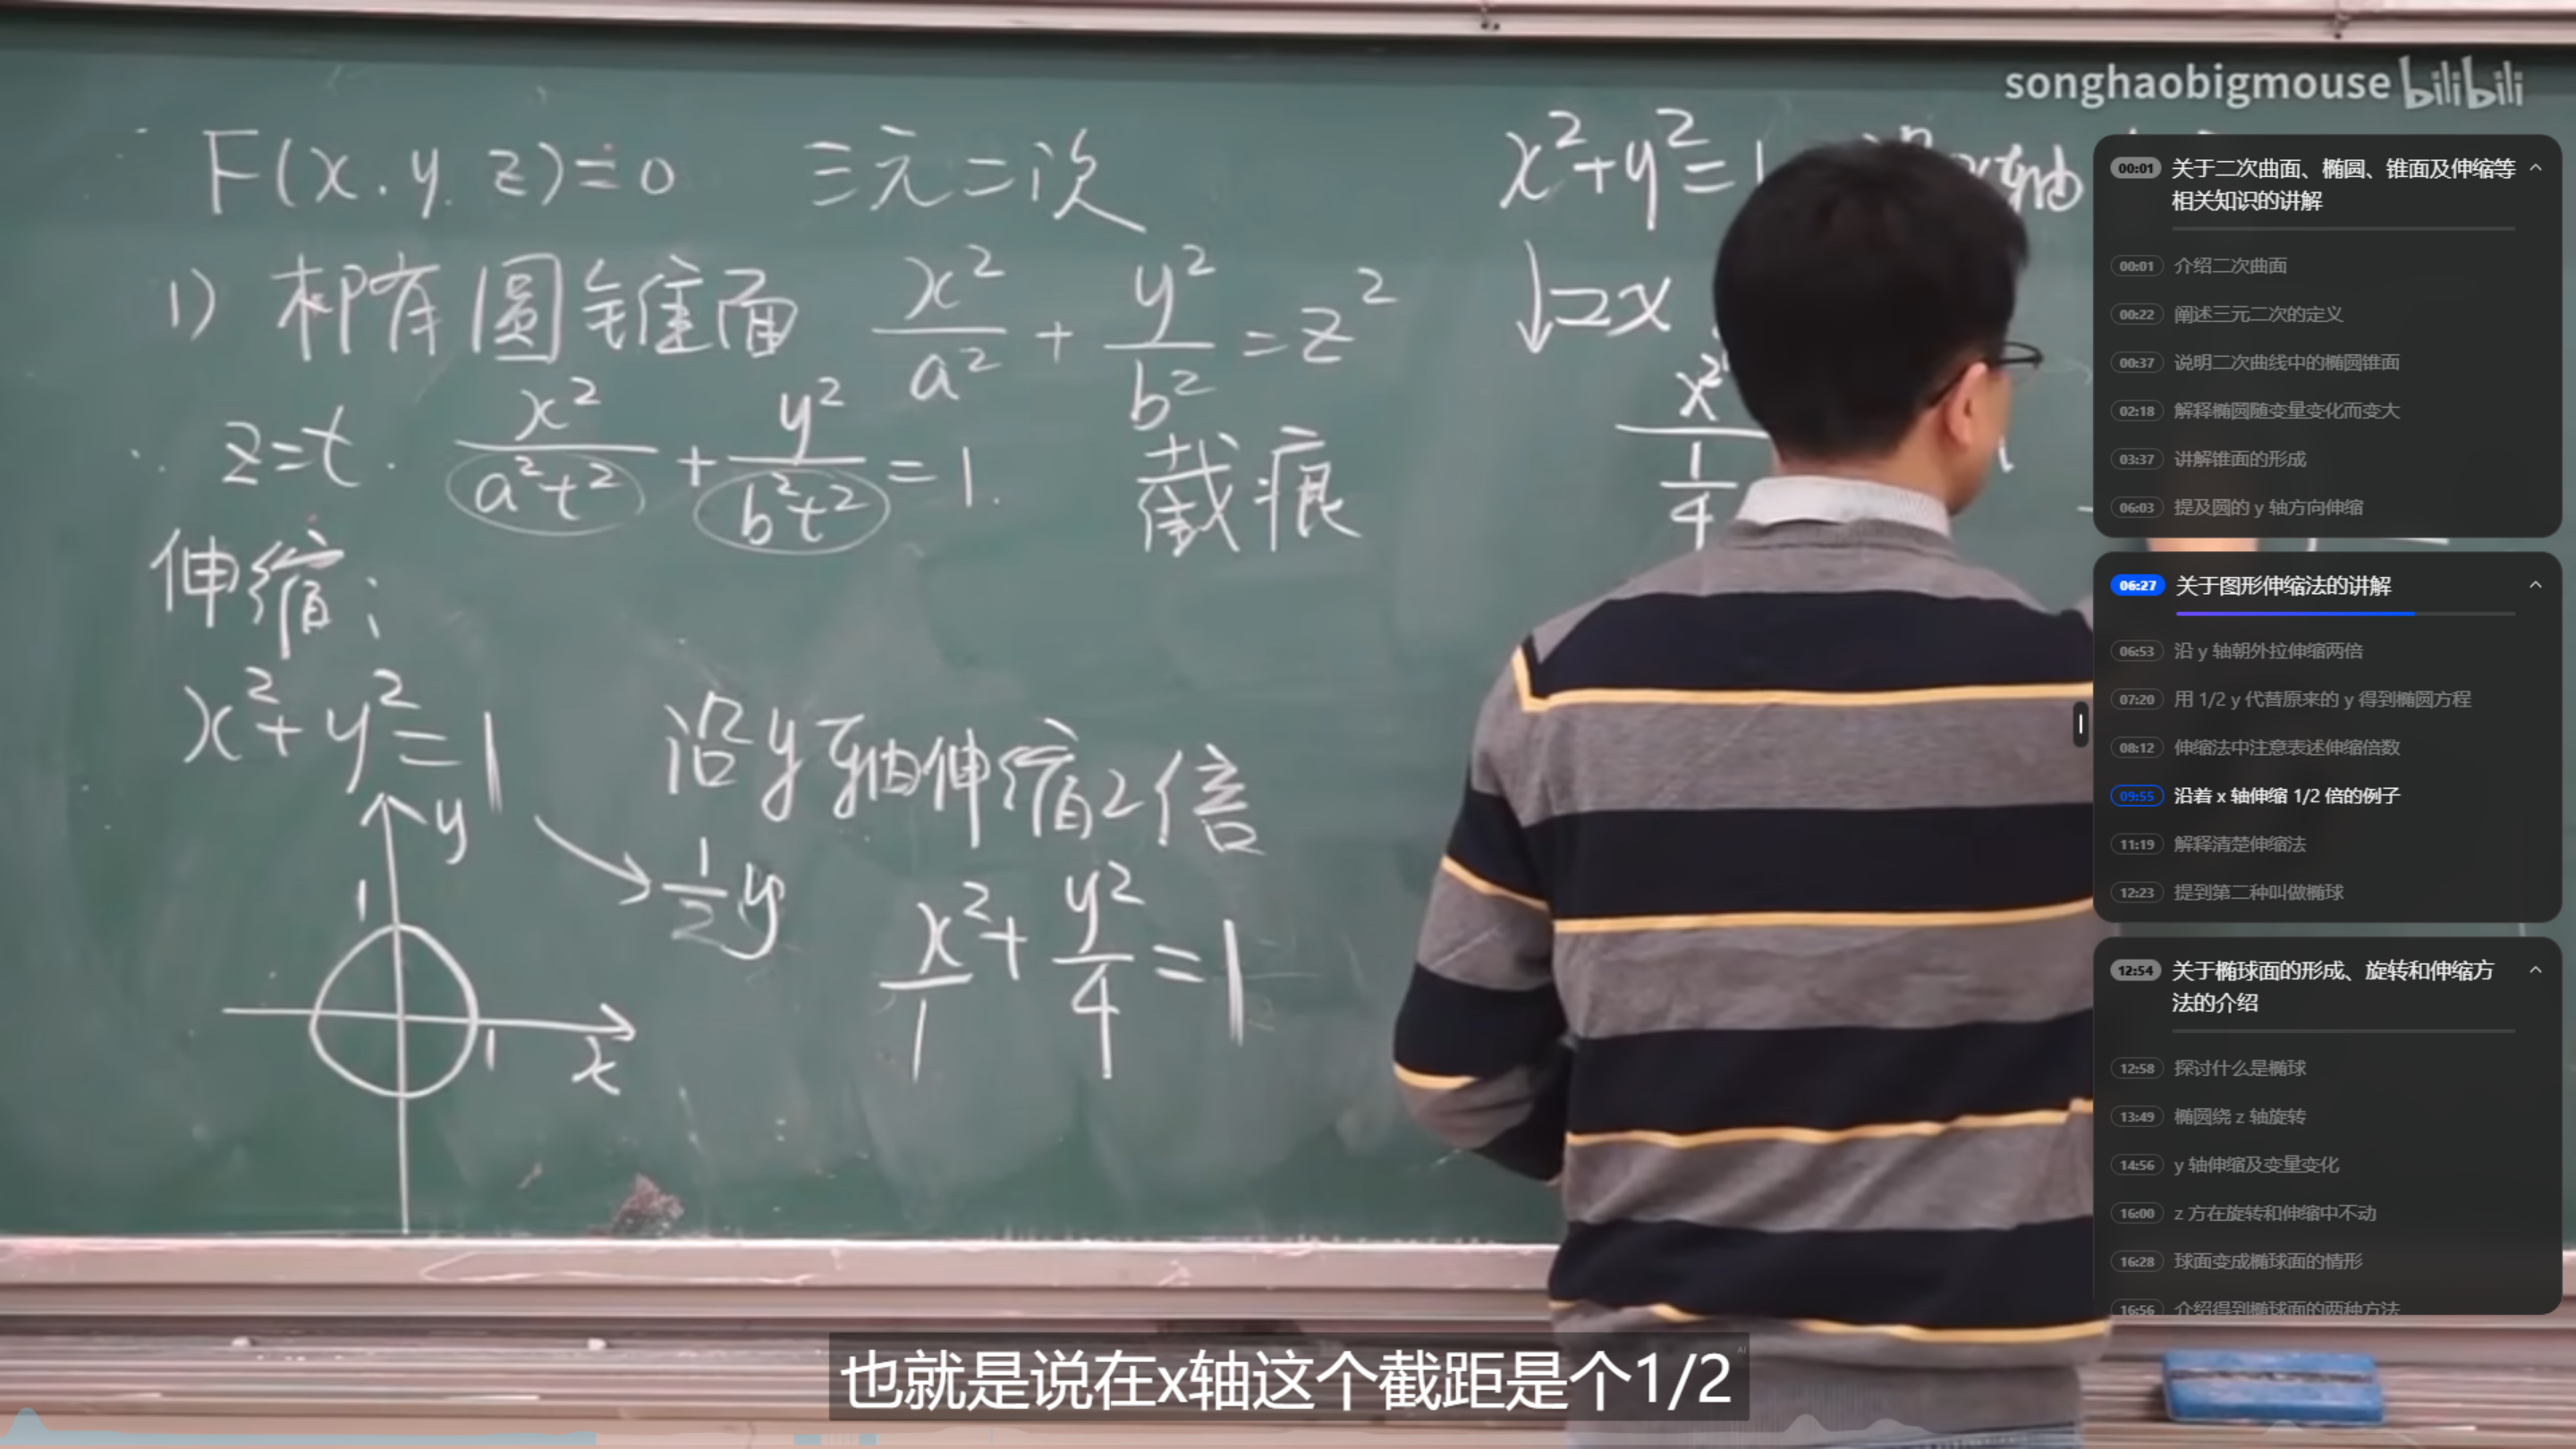 songhaobigmouse bilibili
F(x.y.z)=0 三元二次
1) 椭圆锥面 x²/a² + y²/b² = z²
z=t. x²/a²t² + y²/b²t² = 1. 截痕
伸缩:
x²+y²=1
y
1
1
x
沿y轴伸缩2倍
1/2 y
x²/1 + y²/4 = 1
x²+y²=1
轴
2x
x²
1/4
00:01 关于二次曲面、椭圆、锥面及伸缩等相关知识的讲解
00:01 介绍二次曲面
00:22 阐述三元二次的定义
00:37 说明二次曲线中的椭圆锥面
02:18 解释椭圆随变量变化而变大
03:37 讲解锥面的形成
06:03 提及圆的 y 轴方向伸缩
06:27 关于图形伸缩法的讲解
06:53 沿 y 轴朝外拉伸缩两倍
07:20 用 1/2 y 代替原来的 y 得到椭圆方程
08:12 伸缩法中注意表述伸缩倍数
09:55 沿着 x 轴伸缩 1/2 倍的例子
11:19 解释清楚伸缩法
12:23 提到第二种叫做椭球
12:54 关于椭球面的形成、旋转和伸缩方法的介绍
12:58 探讨什么是椭球
13:49 椭圆绕 z 轴旋转
14:56 y 轴伸缩及变量变化
16:00 z 方在旋转和伸缩中不动
16:28 球面变成椭球面的情形
16:56 介绍得到椭球面的两种方法
也就是说在x轴这个截距是个1/2
AI